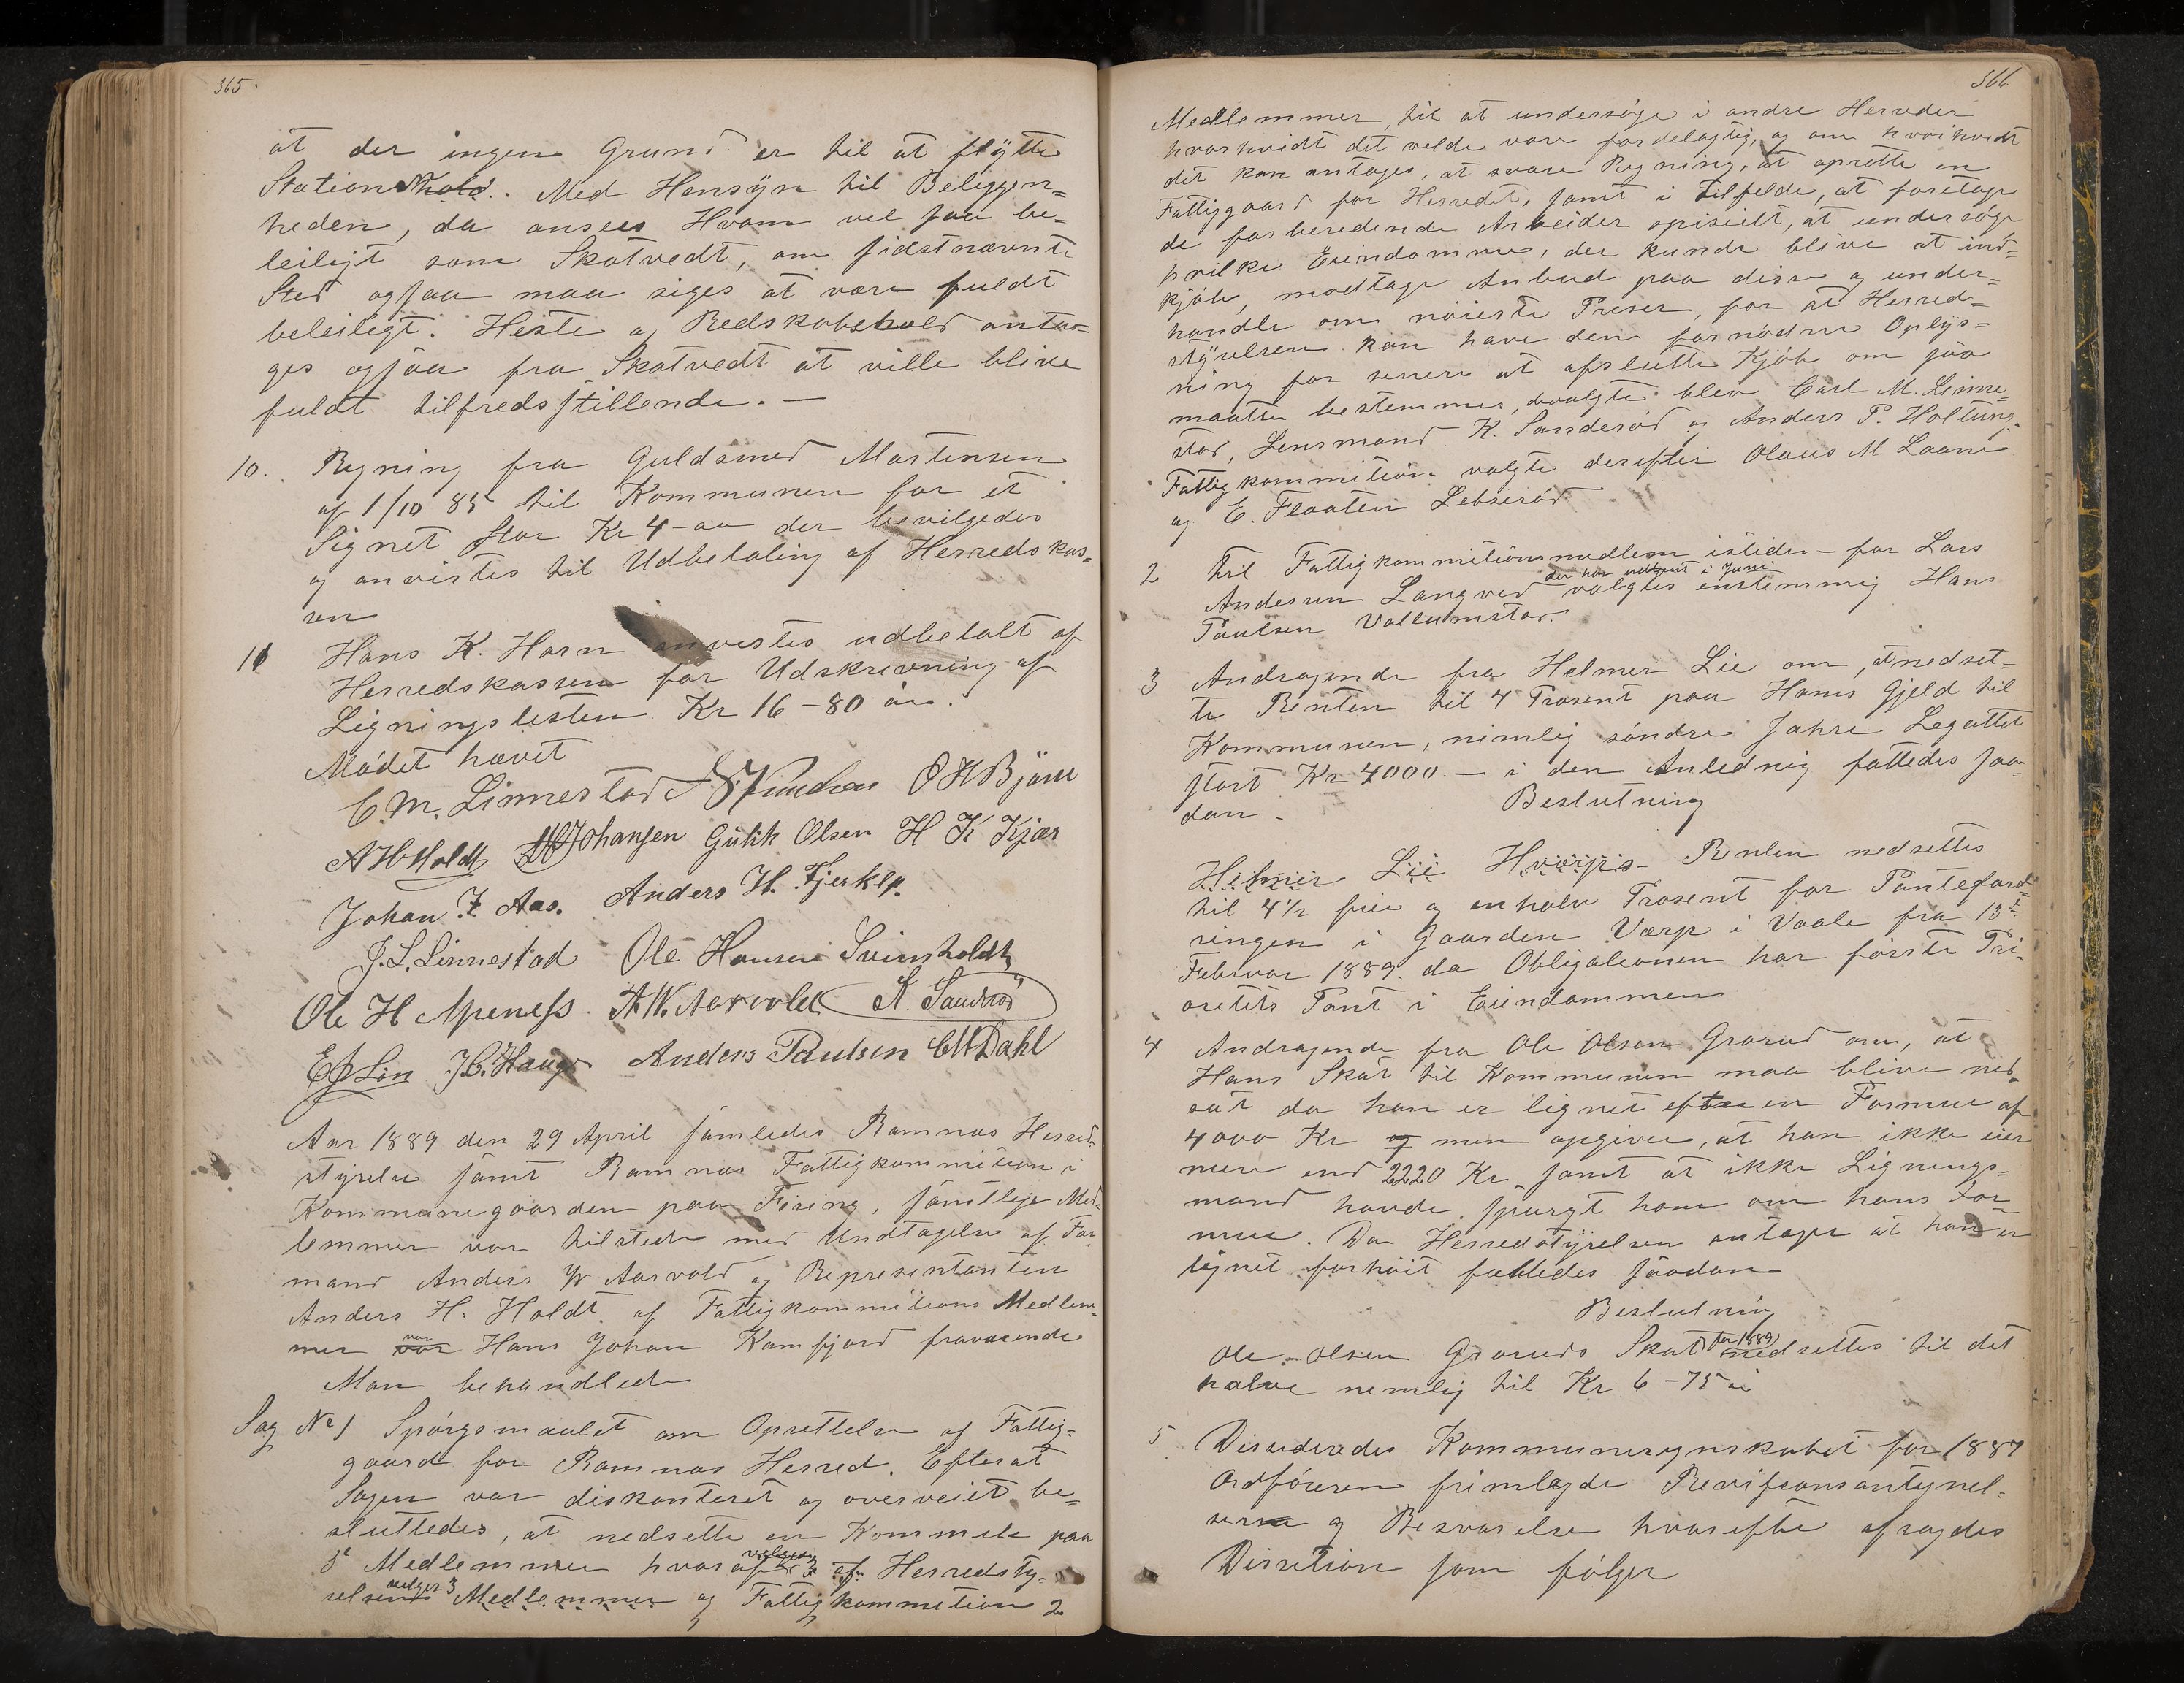 365.
at der ingen Grund er til at flÿtte
Stationshold. Med Hensÿn til Beliggen=
heden, da ansees Hvam vel saa be=
leiligt som Skotvedt, om sidstnævnte
Sted ogsaa maa siges at være fuldt
beleiligt. Heste og Redskabshold anta=
ges ogsaa fra Skotvedt at ville blive
fuldt tilfredsstillende. —
10. Regning fra Guldsmed Martinsen
af 1/10 85 til Kommunen for et
Signet stor Kr 4 - der bevilgedes
og anvistes til Udbetaling af Herredskas=
sen
11 Hans K. Horn anvistes udbetalt af
Herredskassen for Udskrivning af
Ligningslisten Kr 16 - 80 ør.
Mödet hævet
C. M. Linnestad O H Bjöm
A H Holdt Johansen Gulik Olsen H K Kjær
Johan F. Aas. Anders H. Fjerkep.
J. L. Linnestad Ole Hansen Svinsholdt
Ole H Apeness. A. W. Aarvold K. Sanderöd
E J Lin J. C. Haug Anders Paulsen C M Dahl
Aar 1889 den 29 April samledes Ramnæs Herred=
styrelse samt Ramnæs Fattigkommition i
Kommunegaarden paa Firing, samtlige Med=
lemmer var tilstede med Undtagelse af For
mand Anders W Aarvold og Representanten
Anders H. Holdt. af Fattigkommitions Medlem=
mer var Hans Johan Kamfjord fraværende
Man behandlede
Sag No 1 Spörgsmaalet om Oprettelse af Fattig=
gaard for Ramnæs Herred. Efterat
Sagen var diskonteret og overveiet be=
sluttedes, at nedsette en Kommite paa
5 Medlemmer hvoraf af Herredsty=
relsen vælges 3 Medlemmer og Fattigkommition 2
366.
Medlemmer, til at undersöge i andre Herreder
hvorhvidt det vilde være fordelagtig, og om hvorhvidt
det kan antages, at svare Regning, at oprette en
Fattiggaard for Herredet, samt i Tilfelde, at foretage
de forberedende Arbeider spisielt, at undersöge
hvilke Eiendomme, der kunde blive at ind=
kjöbe, modtage Anbud paa disse og under=
handle om nöieste Priser, for at Herred=
styrelsen kan have den fornödne Oplÿs=
ning for senere at afslutte Kjöb om saa
maatte bestemmes, valgte blev Carl M. Linne=
stad, Lensmand K. Sanderöd og Anders P. Holtung.
Fattigkommition valgte derefter Olaus M Laane
og E. Flaaten Lebseröd
2 Til Fattigkommitionsmedlem istedenfor Lars
der har udtjent i Juni
Andersen Langved valgtes enstemmig Hans
Paulsen Vallumstad.
3 Andragende fra Helmer Lie om, at nedset=
te Renten til 4 Prosent paa Hans Gjeld til
Kommunen, nimlig söndre Jahre Legattet
stort Kr 4000. — i den Anledning fattedes saa
dan - Beslutning
Helmer Lie Renten nedsettes
til 4 1/2 fire og en halv Prosent for Panteford=
ringen i GaardenVærp i Vaale fra 13de
Februar 1889. da Obligationen har förste Pri=
oritets Pant i Eiendommen
4 Andragende fra Ole Olsen Grorud om, at
Hans Skat til Kommunen maa blive ned=
sat da han er lignet efter en Formue af
4000 Kr og men opgiver, at han ikke eier
mere end 2220 Kr. samt at ikke Lignings=
mand havde spurgt ham om hans For=
mue. Da Herredstÿrelsen antager at han er
lignet forhöit fattedes saadan
Beslutning
Ole Olsen Groruds Skat for 1889 nedsettes til det
halve nemlig til Kr 6 - 75 ör
5. Desiederedes Kommuneregnskabet for 1887
Ordföreren frimlagde Revisionsantegnel=
serne og Besvarelse hvorefter afsagdes
Disistion som fölger